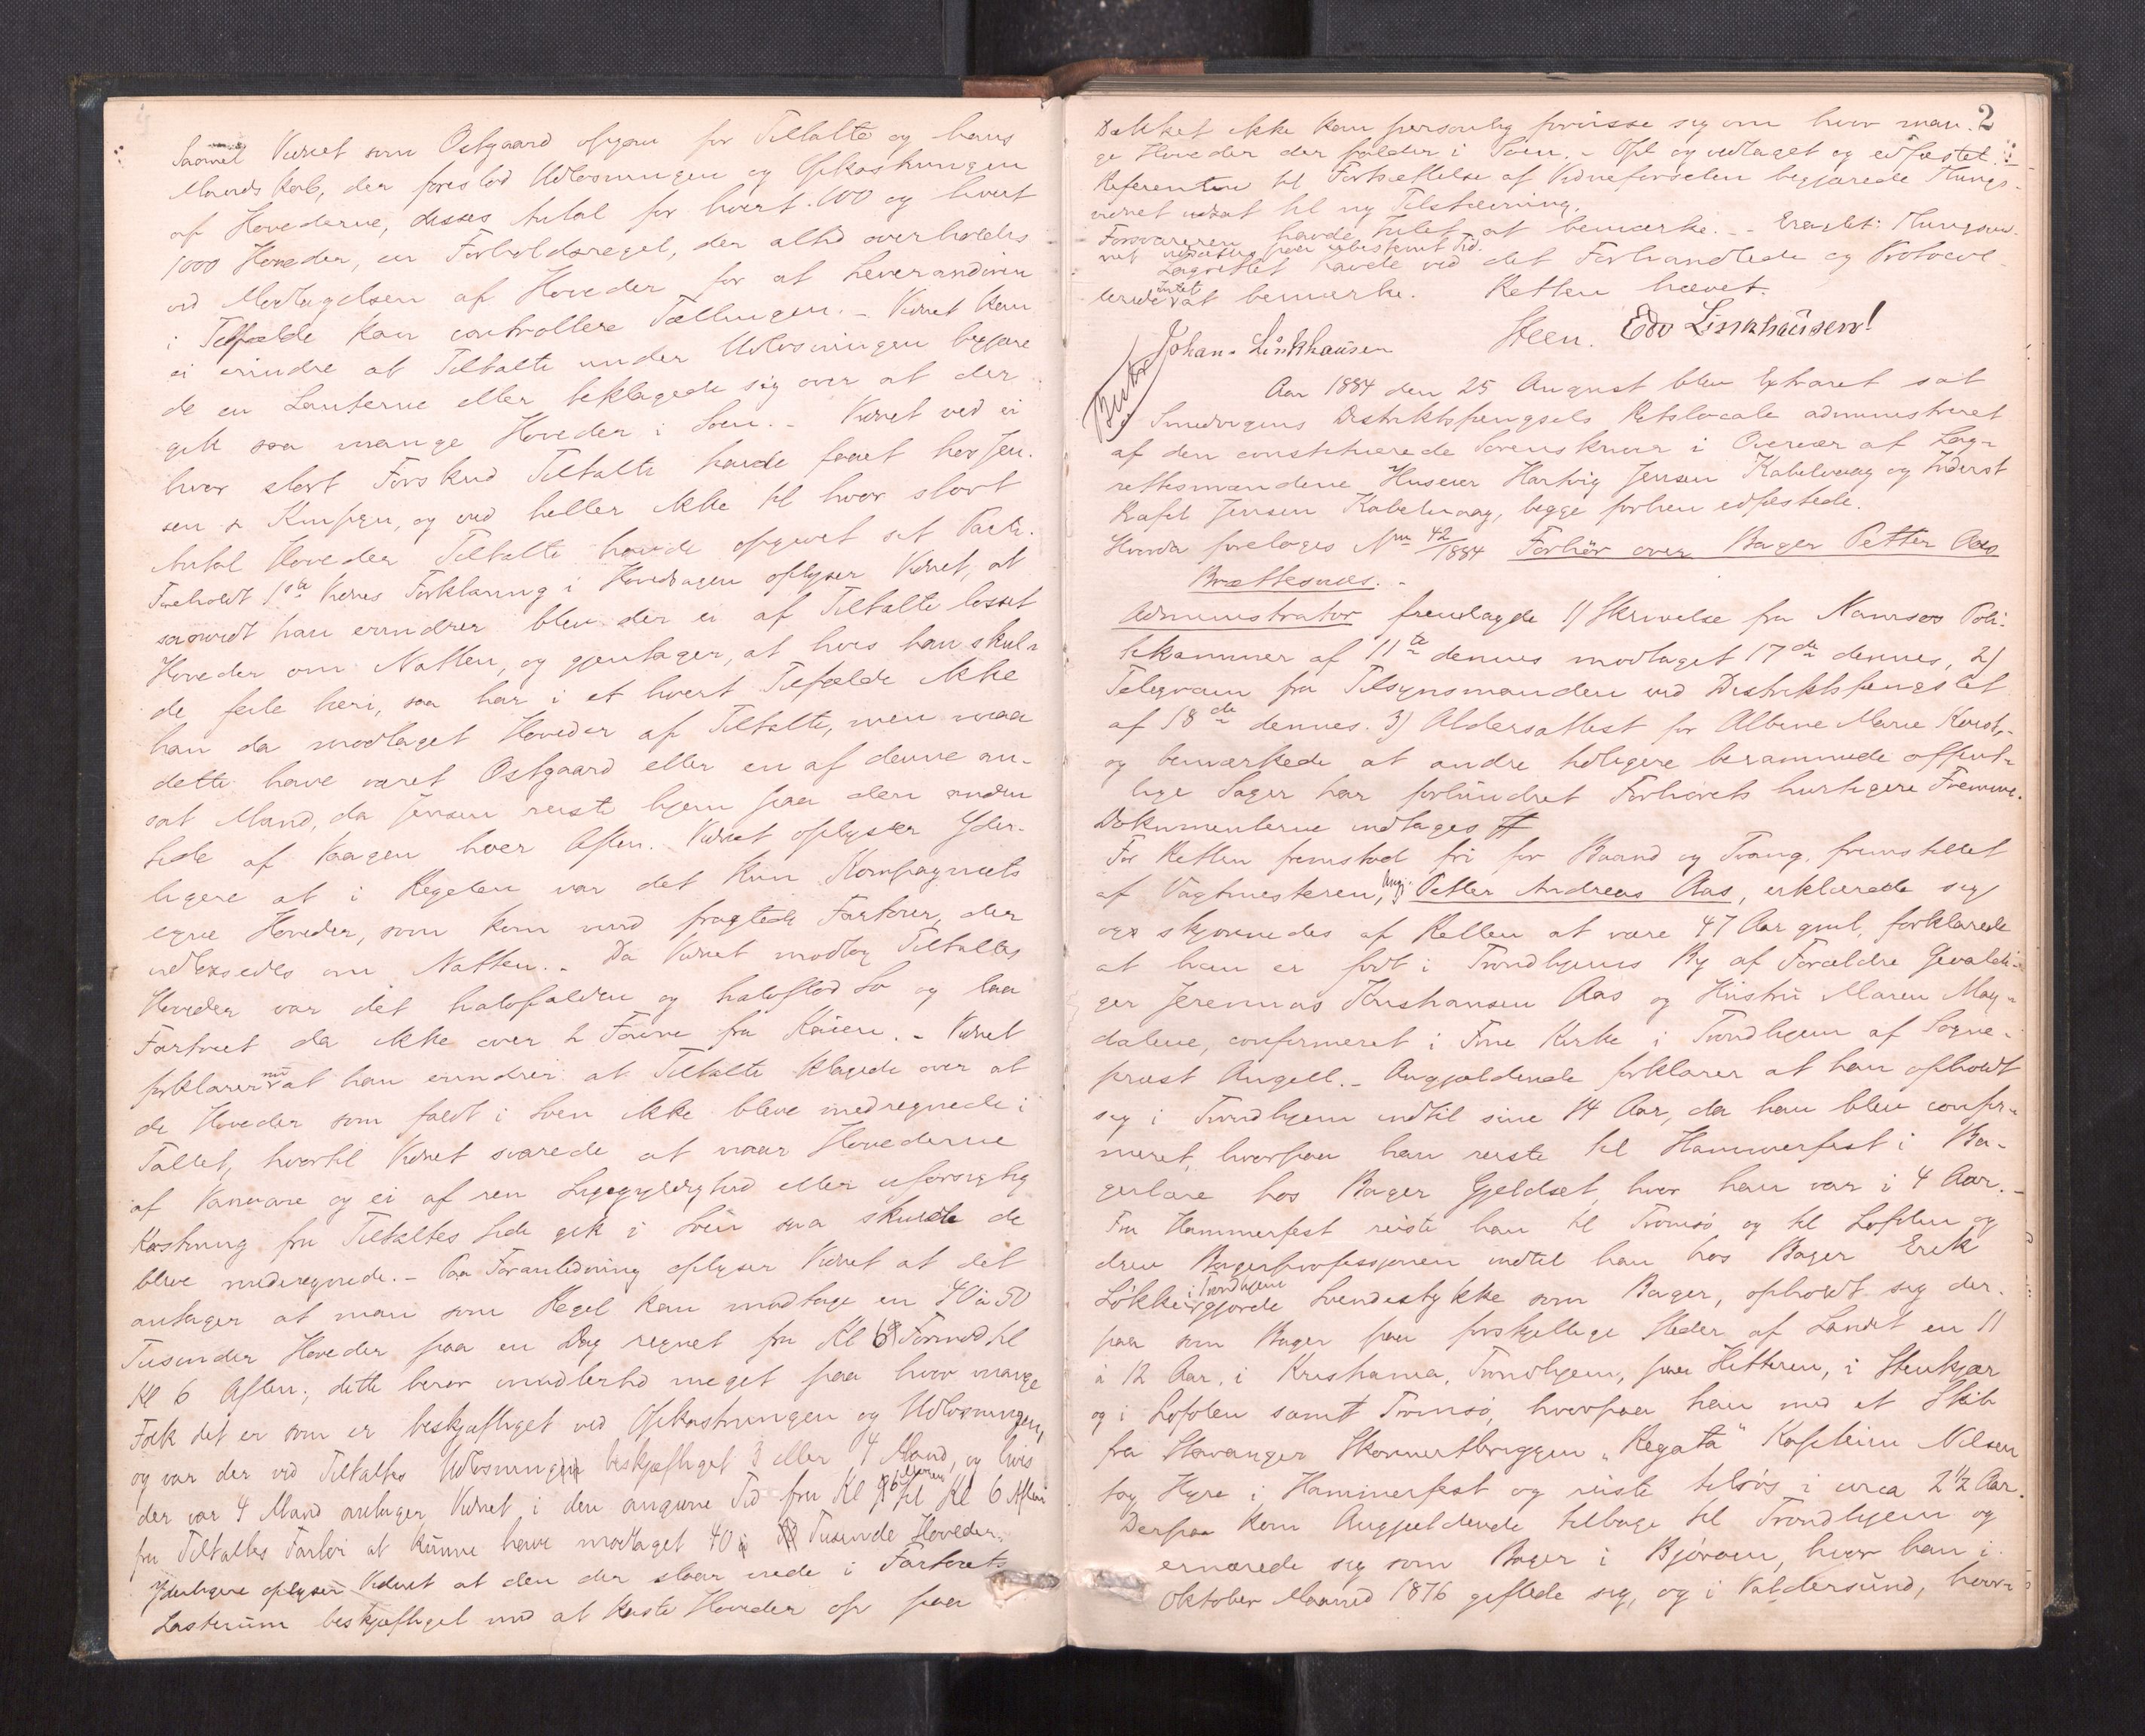 Saavel Vidnet som Ostgaard opgav for Tiltalte og hans
Mandskab, der forestod Udlosningen og Opkastningen
af Hovederne, disses Antal for hvert 100 og hvert
1000 Hoveder, en Forholdsregel, der altid overholdes
ved Modtagelsen af Hoveder for at Leverandøren
i Tilfælde kan controllere Tællingen. - Vidnet kan
ei erindre at Tiltalte under Udlosningen begjære
de en Lanterne eller beklagede sig over at der
gik saa mange Hoveder i Søen. - Vidnet ved ei
hvor stort Forskud Tiltalte havde faaet hos Jen-
sen & Kmpgn, og ved heller ikke til hvor stort
Antal Hoveder Tiltalte havde opgivet sit Parti.
Foreholdt 1ste Vidnes Forklaring i Hovedsagen oplyser Vidnet, at
saavidt han erindrer blev der ei af Tiltalte losset
Hoveder om Natten, og gjentager, at hvis han skul-
de feile heri, saa har i et hvert Tilfælde ikke
han da modtaget Hoveder af Tiltalte, men maa
dette have været Ostgaard eller en af denne an-
sat Mand, da Jensen reiste hjem paa den anden
Side af Vaagen hver Aften. Vidnet oplyser Yder-
ligere at i Regelen var det kun Kompagniets
egne Hoveder, som kom med fragtede Fartøier, der
udlossedes om Natten. - Da Vidnet modtog Tiltaltes
Hoveder var det halvfalden og halvflod Sø og laa
Fartøiet da ikke over 2 Favne fra Kaien. - Vidnet
forklarer nu at han erindrer at Tiltalte klagede over at
de Hoveder som faldt i Søen ikke bleve medregnede i
Tallet, hvortil Vidnet svarede at naar Hovederne
af Vanvare og ei af ren Ligegyldighed eller uforsigtig
Kastning fra Tiltaltes Side gik i Søen saa skulde de
bleve medregnede. - Paa Foranledning oplyser Vidnet at det
antager at man som Regel kan modtage en 40 à 50
Tusinder Hoveder paa en Dag regnet fra Kl 6 Formd til
Kl 6 Aften; dette beror imidlertid meget paa hvor mange
Folk det er som er beskjæftiget ved Opkastningen og Udlosningen,
og var der ved Tiltaltes Udlosning beskjæftiget 3 eller 4 Mand, og hvis
der var 4 Mand antager Vidnet i den angivne Tid fra Kl til Kl 6 Aften
fra Tiltaltes Fartøi at kunne have modtaget 40 Tusinde Hoveder.
Yderligere oplyser Vidnet at den der staar nede i Fartøiets
Lasterum beskjæftiget med at kaste Hoveder op paa
2
Dækket ikke kan personlig forvisse sig om hvor man-
ge Hoveder der falder i Søen. - Opl og vedtaget og edfæstet.
Referenten til Fortsættelse af Vidneførselen begjærede Things-
vidnet udsat til ny Tilstævning.
Forsvareren havde Intet at bemærke. - Eragtet: Thingsvid-
net udsættes paa ubestemt Tid.
Lagrettet havde ved det Forhandlede og Protocol-
lerede Intet at bemærke. Retten hævet.
Steen. Edv Linkhausen!
Johan Linkhausen
Aar 1884 den 25 August blev Extraret sat
i Svolværgens Distriktsfængsels Retslocale administreret
af den constituerede Sorenskriver i Overvær af Lag-
rettesmændene Huseier Hartvig Jensen Kabelvaag og Inderst
Rafel Jensen Kabelvaag, begge forhen edfæstede.
Hvorda foretoges No 42/1884 Forhør over Bager Petter Aas
Brættesnæs. -
Administrator fremlagde 1) Skrivelse fra Namsos Poli-
tikammer af 11te dennes modtaget 17de dennes, 2)
Telegram fra Tilsynsmanden ved Distriktsfængslet
af 18de dennes. 3) Aldersattest for Albine Marie
og bemærkede at andre tidligere berammede offent-
lige Sager har forhindret Forhørets hurtigere Fremme.
Dokumenterne indtages #
For Retten fremstod fri for Baand og Tvang, fremstillet
af Vagtmesteren, Angj. Petter Andreas Aas, erklærede sig
og skjønnedes af Retten at være 47 Aar gml, forklarede
at han er født i Trondhjems By af Forældre Gevaldi-
ger Jeremias Kristiansen Aas og Hustru Maren Mag-
dalene, confirmeret i Frue Kirke i Trondhjem af Sogne-
præst Angell. - Angjældende forklarer at han opholdt
sig i Trondhjem indtil sine 14 Aar, da han blev confir-
meret, hvorpaa han reiste til Hammerfest i Ba-
gerlære hos Bager Gjeldset, hvor han var i 4 Aar. -
Fra Hammerfest reiste han til Tromsø og til Lofoten og
drev Bagerprofessionen indtil han hos Bager Erik
Løkken i Trondhjem gjorde Svendestykke som Bager, opholdt sig der-
paa som Bager paa forskjellige Steder af Landet en 11
à 12 Aar, i Kristiania, Trondhjem, paa Hitteren, i Stenkjær
og i Lofoten samt Tromsø, hvorpaa han med et Skib
fra Stavanger Skonnertbriggen "Regata" Kaptein Nilsen
tog Hyre i Hammerfest og reiste tilsøs i circa 2 1/2 Aar.
Derpaa kom Angjældende tilbage til Trondhjem og
ernærede sig som Bager i Bjørøen, hvor han i
Oktober Maaned 1876 giftede sig, og i Valdersund, hvor-